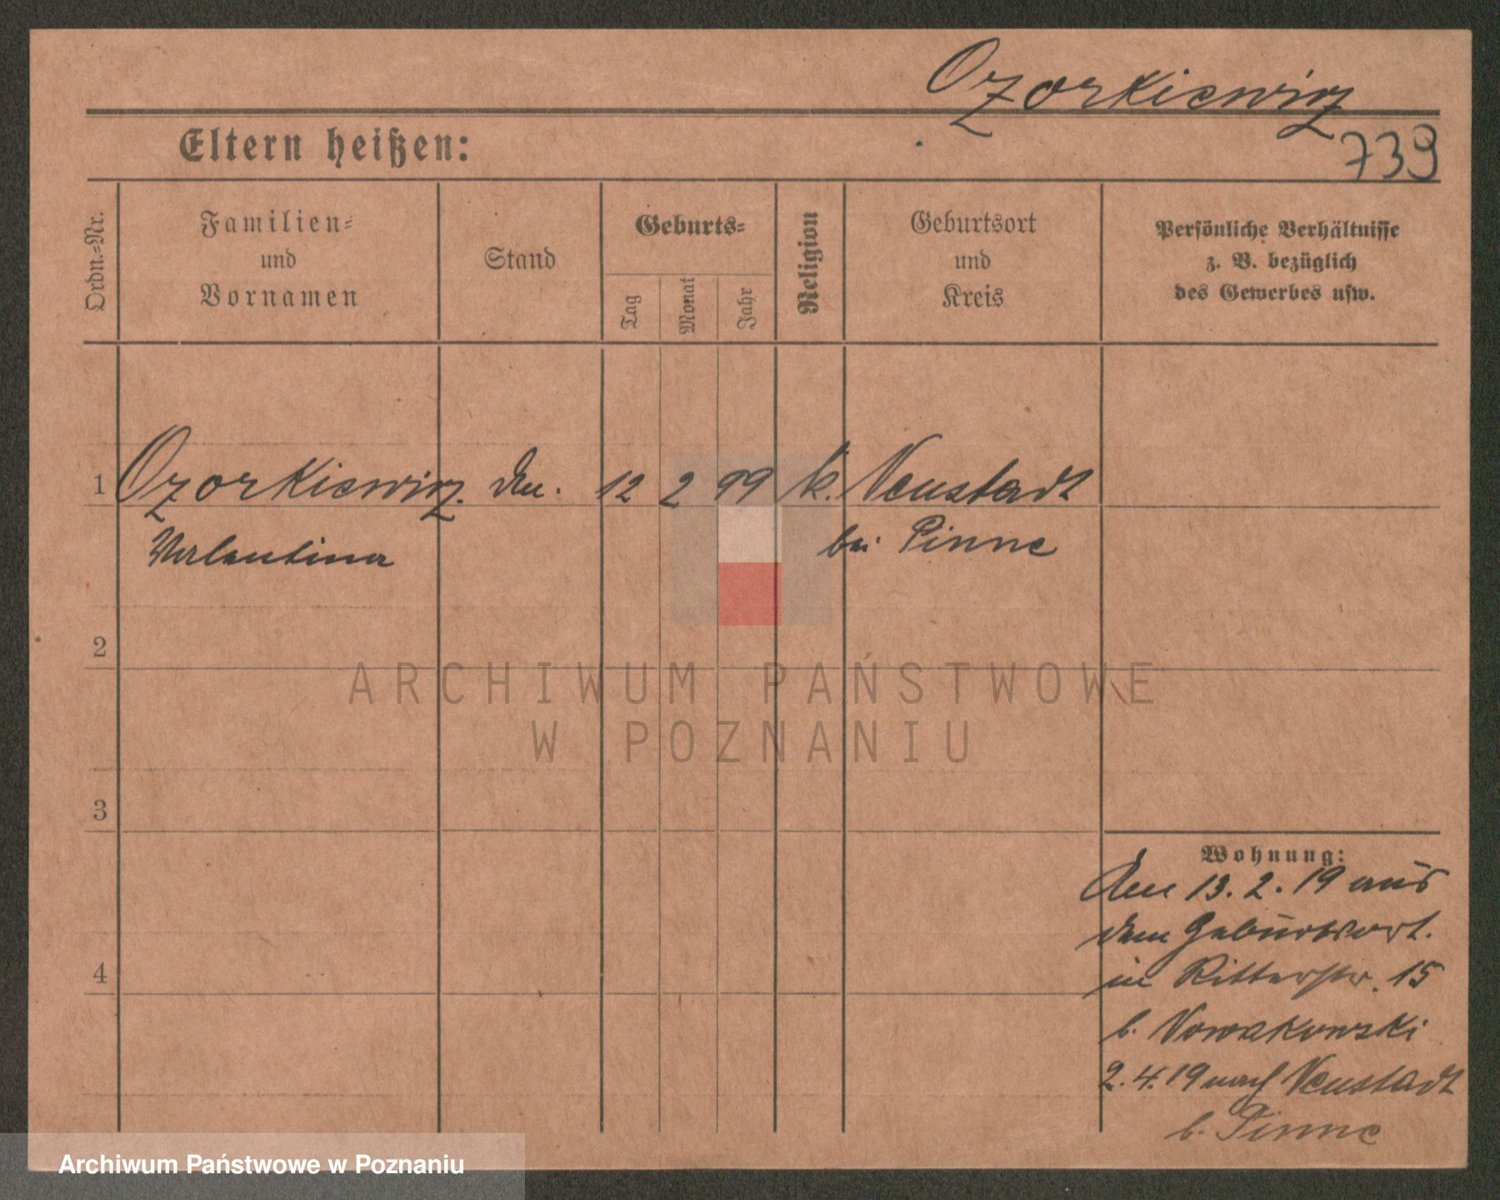 Ozorkiewicz
739
Eltern heißen:
Ordn.-Nr.
Familien-
und
Vornamen
Stand
Geburts-
Tag
Monat
Jahr
Religion
Geburtsort
und
Kreis
Persönliche Verhältnisse
z. B. bezüglich
des Gewerbes usw.
1 Ozorkiewicz. 12 2 99 k. Neustadt
Valentina bei Pinne
2
ARCHIWUM PAŃSTWOWE
W POZNANIU
3
Wohnung:
Am 13.2.19 aus
dem Geburtsort.
in Ritterstr. 15
b. Nowakowski
4
2.4.19 nach Neustadt
b. Pinne
Archiwum Państwowe w Poznaniu